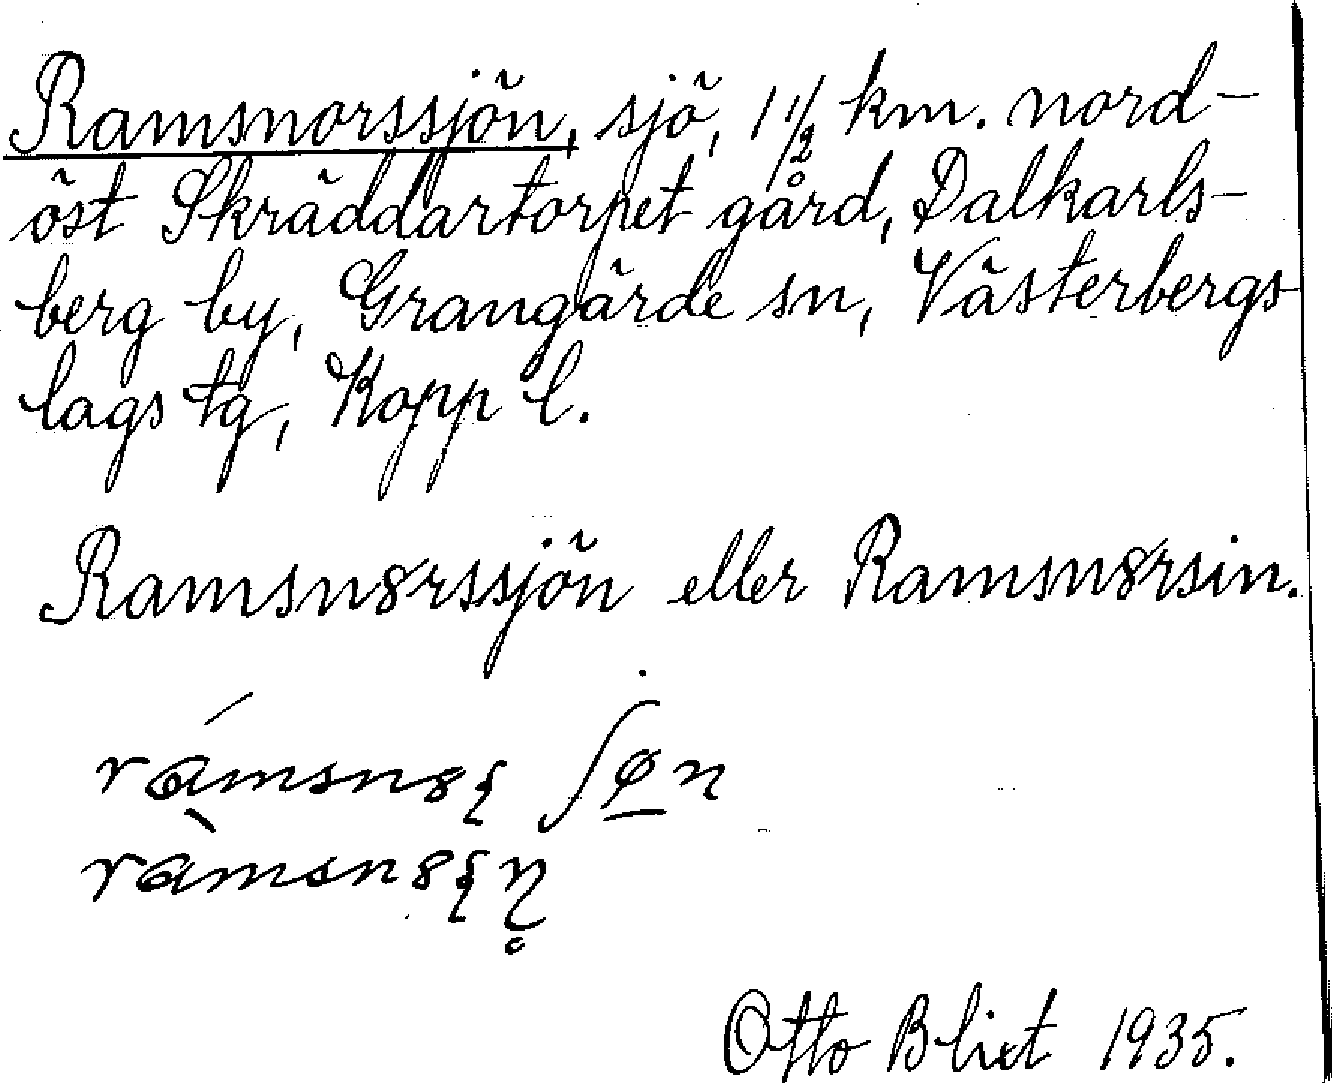 Ramsnorssjön, sjö, 1 1/2 km. nord-
öst Skräddartorpet gård, Dalkarls-
berg by, Grangärde sn, Västerbergs-
lags tg, Kopp l.
Ramsn8rssjön eller Ramsn8rsin.
Otto Blixt 1935.